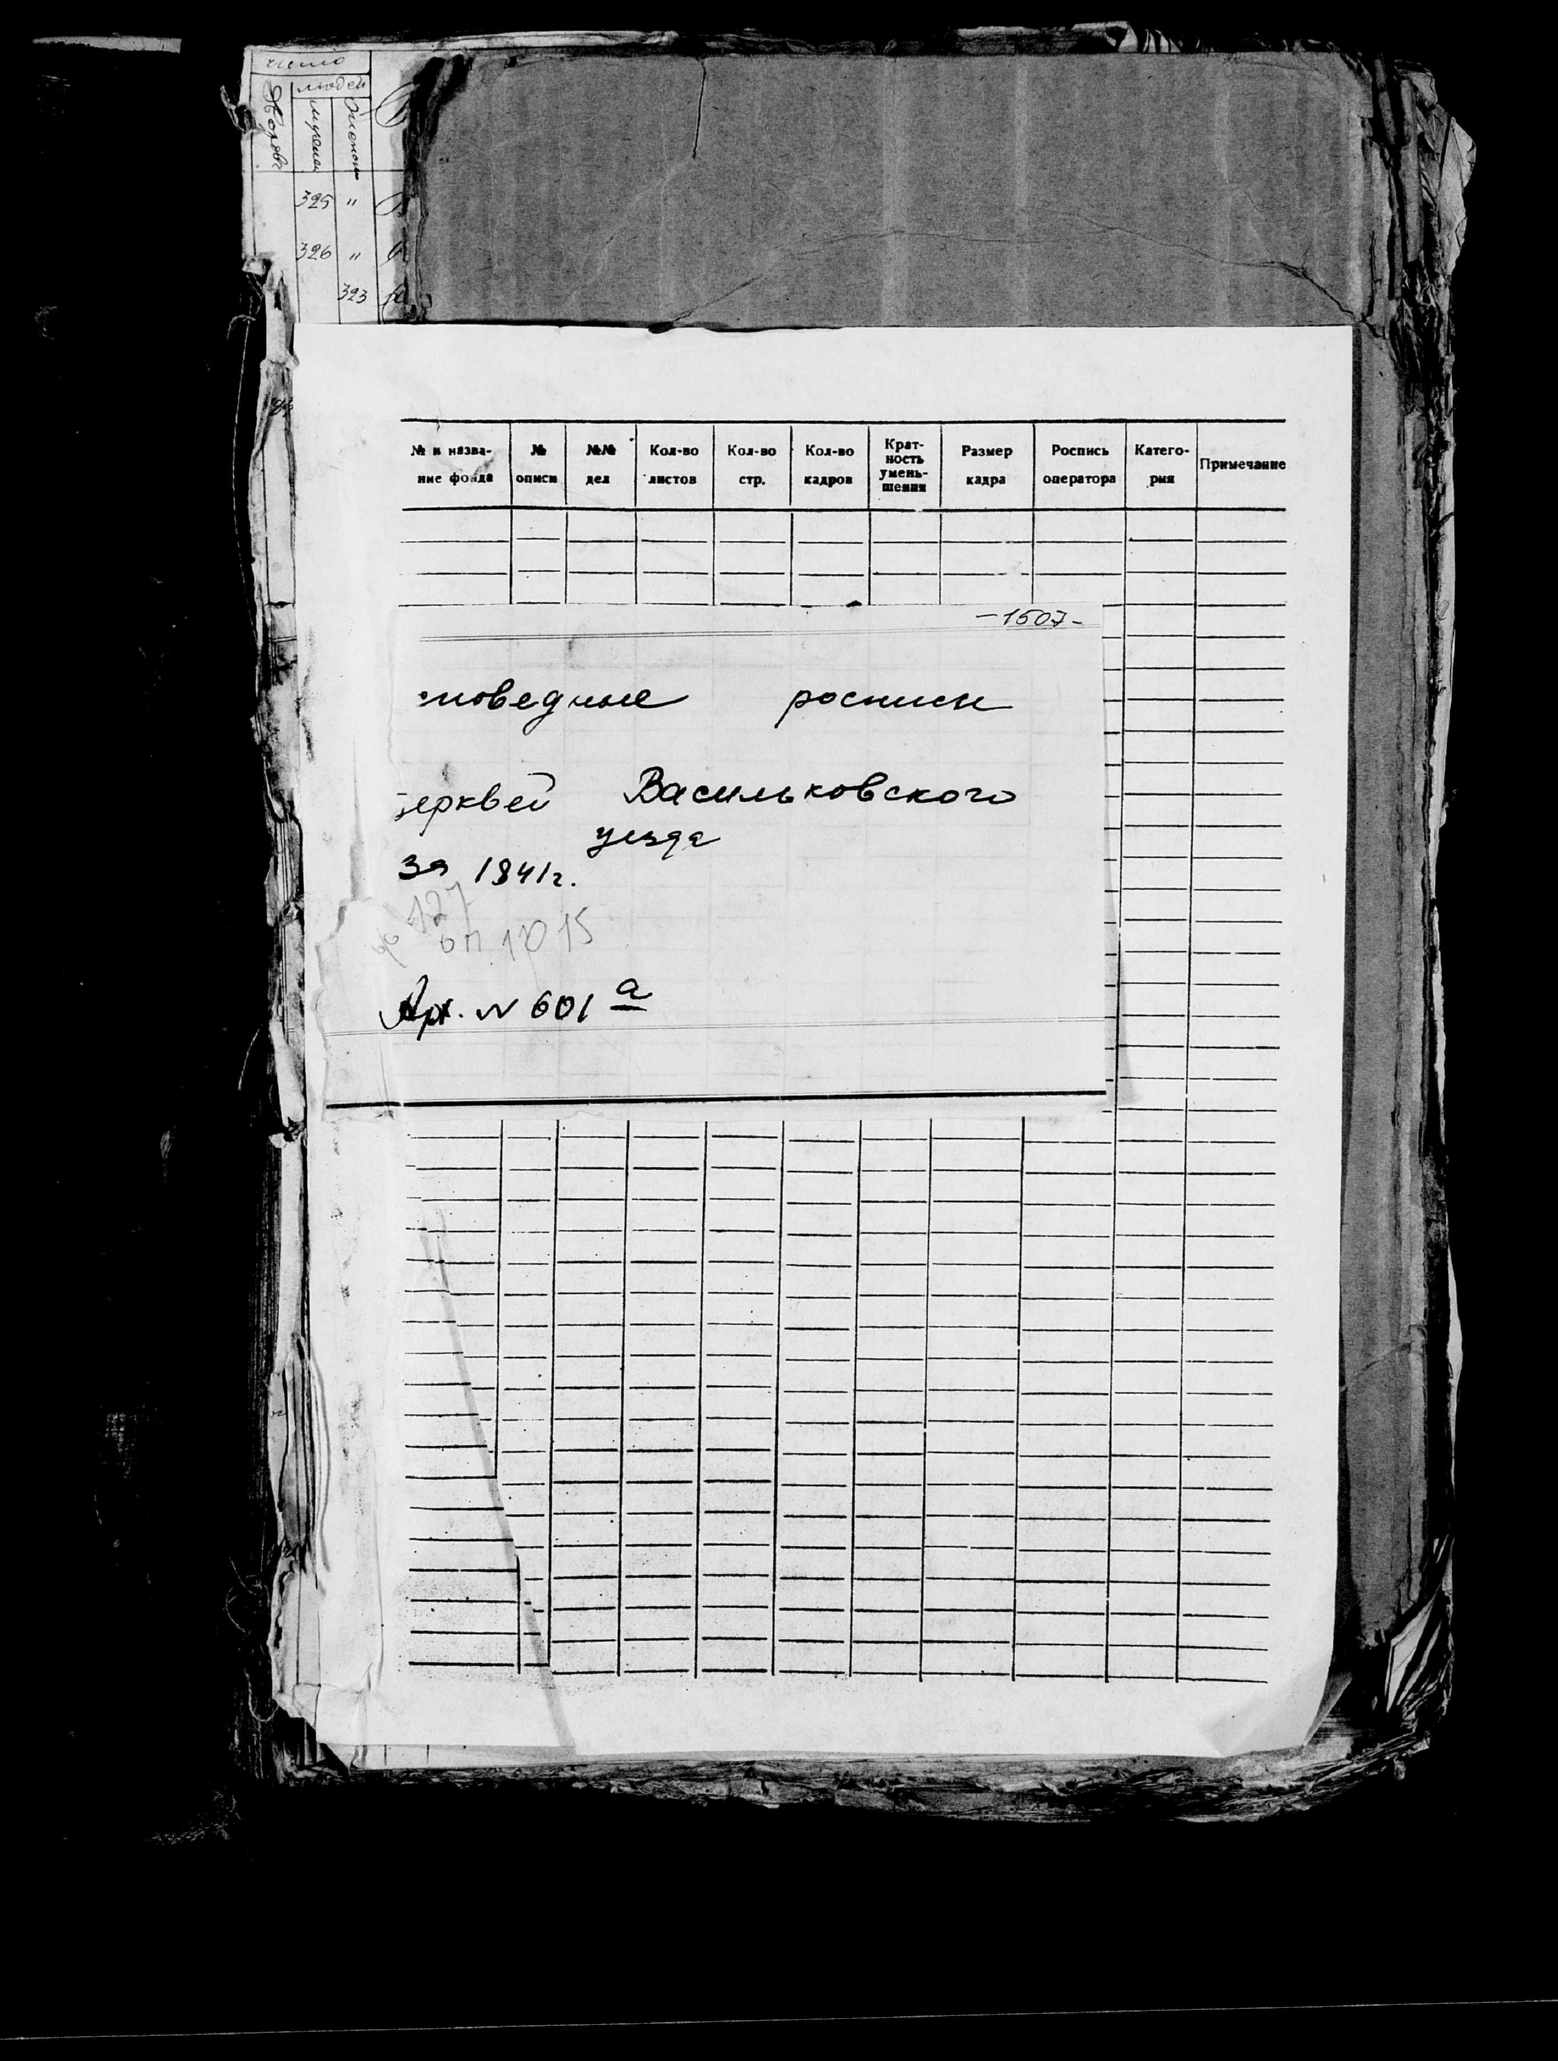 число
людей
Дворовъ
мужеска
женска
325 "
326 "
323
№ и назва-
ние фонда
№
описи
№№
дел
Кол-во
листов
Кол-во
стр.
Кол-во
кадров
Крат-
ность
умень-
шения
Размер
кадра
Роспись
оператора
Катего-
рия
Примечание
-1507-
споведные росписи
церквей Васильковского
уезда
за 1841г.
ф 127
оп. 1015
Арх. N 601 а